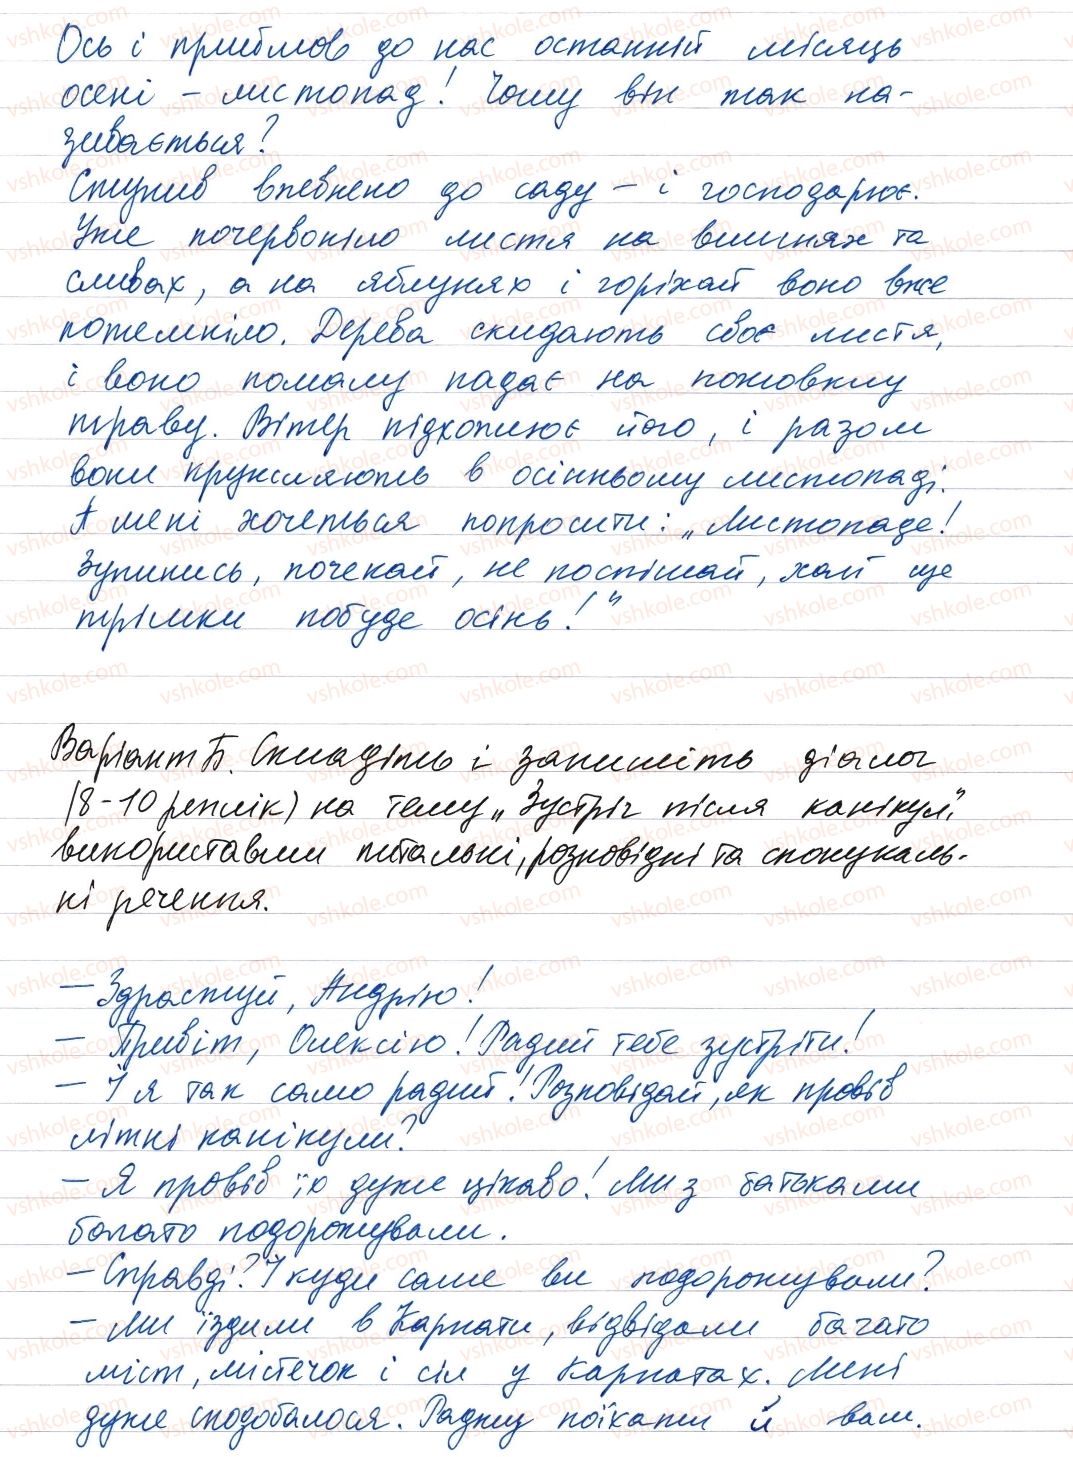 Ось і прийшов до нас останній місяць
осені – листопад! Чому він так на-
зивається?
Ступив впевнено до саду – і господарює.
Уже почервоніло листя на вишнях та
сливах, а на яблунях і горіхах воно вже
потемніло. Дерева скидають своє листя,
і воно помалу падає на пожовклу
траву. Вітер підхоплює його, і разом
вони кружляють в осінньому листопаді.
А мені хочеться попросити: „Листопаде!
Зупинись, почекай, не поспішай, хай ще
трішки побуде осінь!"
Варіант Б. Складіть і запишіть діалог
(8-10 реплік) на тему „Зустріч після канікул",
використавши питальні, розповідні та спонукаль-
ні речення.
– Здрастуй, Андрію!
– Привіт, Олексію! Радий тебе зустріти!
– І я так само радий! Розповідай, як провів
літні канікули?
– Я провів їх дуже цікаво! Ми з батьками
багато подорожували.
– Справді? І куди саме ви подорожували?
– Ми їздили в Карпати, відвідали багато
міст, містечок і сіл у Карпатах. Мені
дуже сподобалося. Раджу поїхати й вам.